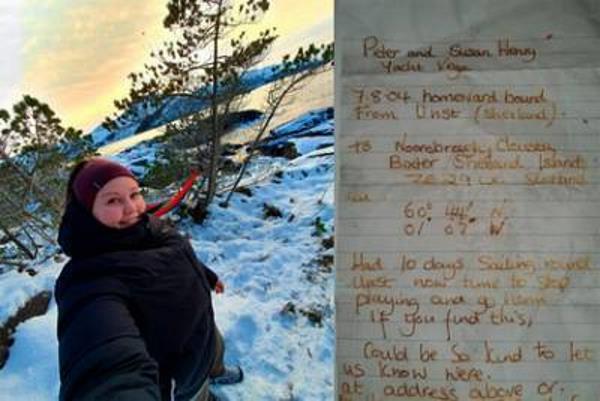 Peter and Susan Henry
Yacht
7.8.04 homeward bound
From Unst (Shetland).
to
Shetland Islands
Scotland
60° 44' N
01° 07' W
Had 10 days Sailing round
Unst now time to stop
playing and go Home
If you find this,
Could be so kind to let
us know where.
at address above or.